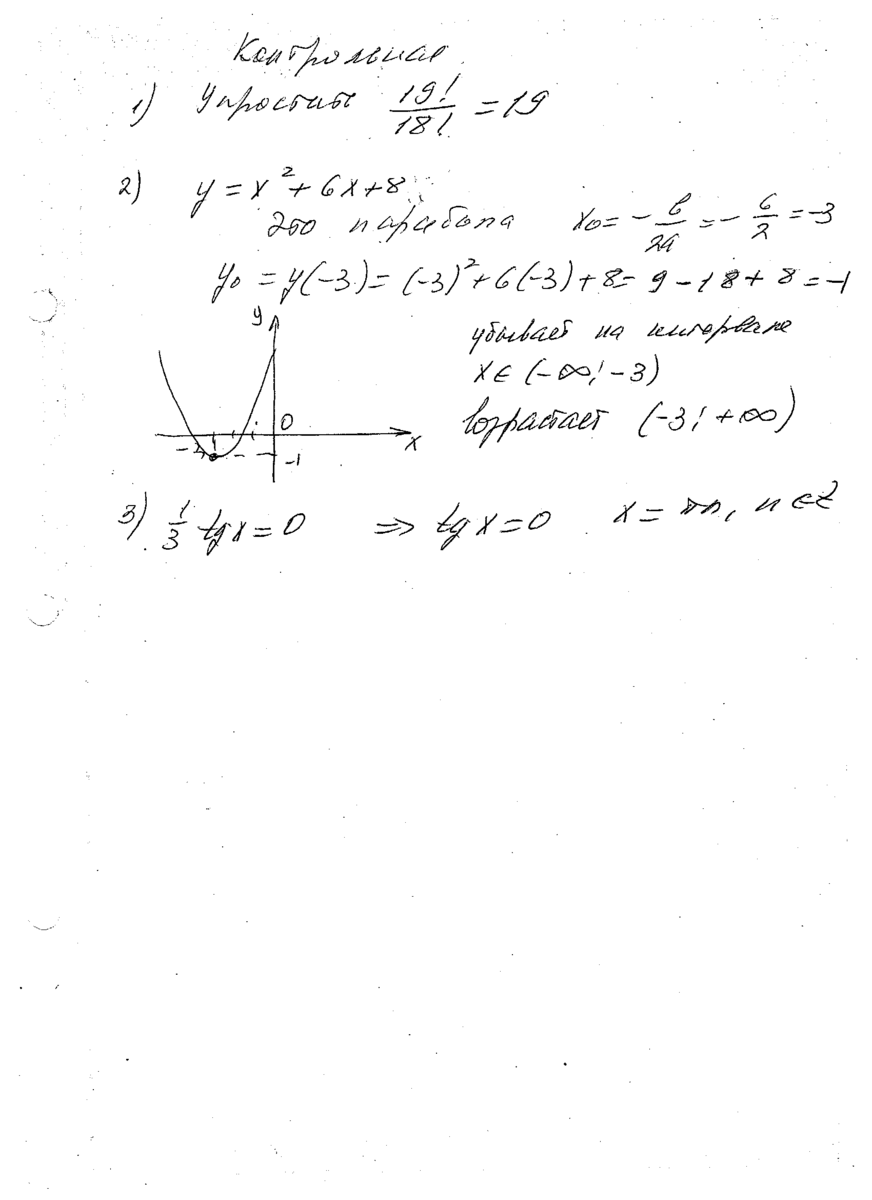 Контрольная
1) Упростить 19!/18! = 19
2) y = x² + 6x + 8
это парабола x₀ = - b/2a = - 6/2 = -3
y₀ = y(-3) = (-3)² + 6(-3) + 8 = 9 - 18 + 8 = -1
y
убывает на интервале
x ∈ (-∞; -3)
возрастает (-3; +∞)
0
x
-1
3) 1/3 tg x = 0 => tg x = 0 x = πn, n ∈ Z